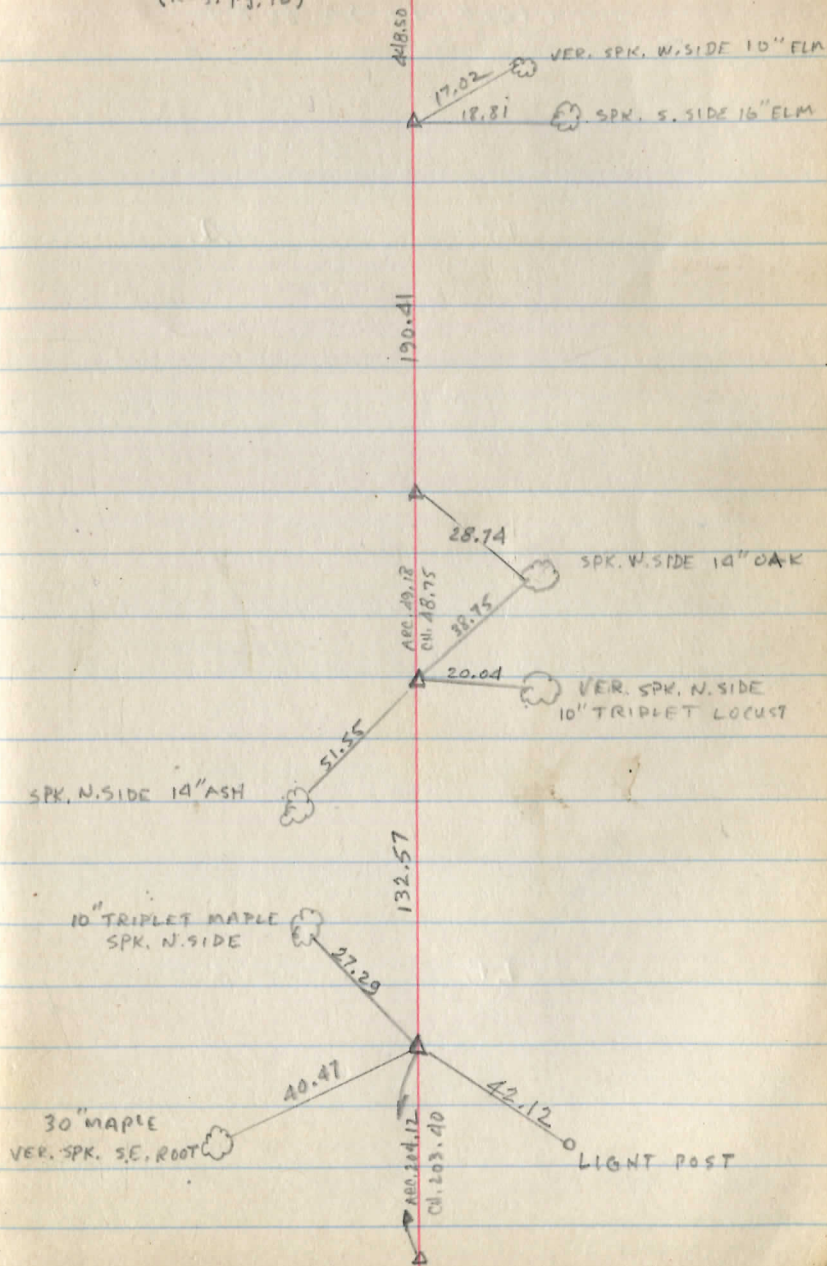 448.50
VER. SPK. W. SIDE 10" ELM
17.02
18.81
SPK. S. SIDE 16" ELM
190.41
28.74
SPK. W. SIDE 14" OAK
ARC. 49.18
CH. 48.75
38.75
20.04
VER. SPK. N. SIDE
10" TRIPLET LOCUST
51.55
SPK. N. SIDE 14" ASH
132.57
10" TRIPLET MAPLE
SPK. N. SIDE
27.29
40.47
42.12
30" MAPLE
VER. SPK. S.E. ROOT
ARC. 204.12
CH. 203.40
LIGHT POST